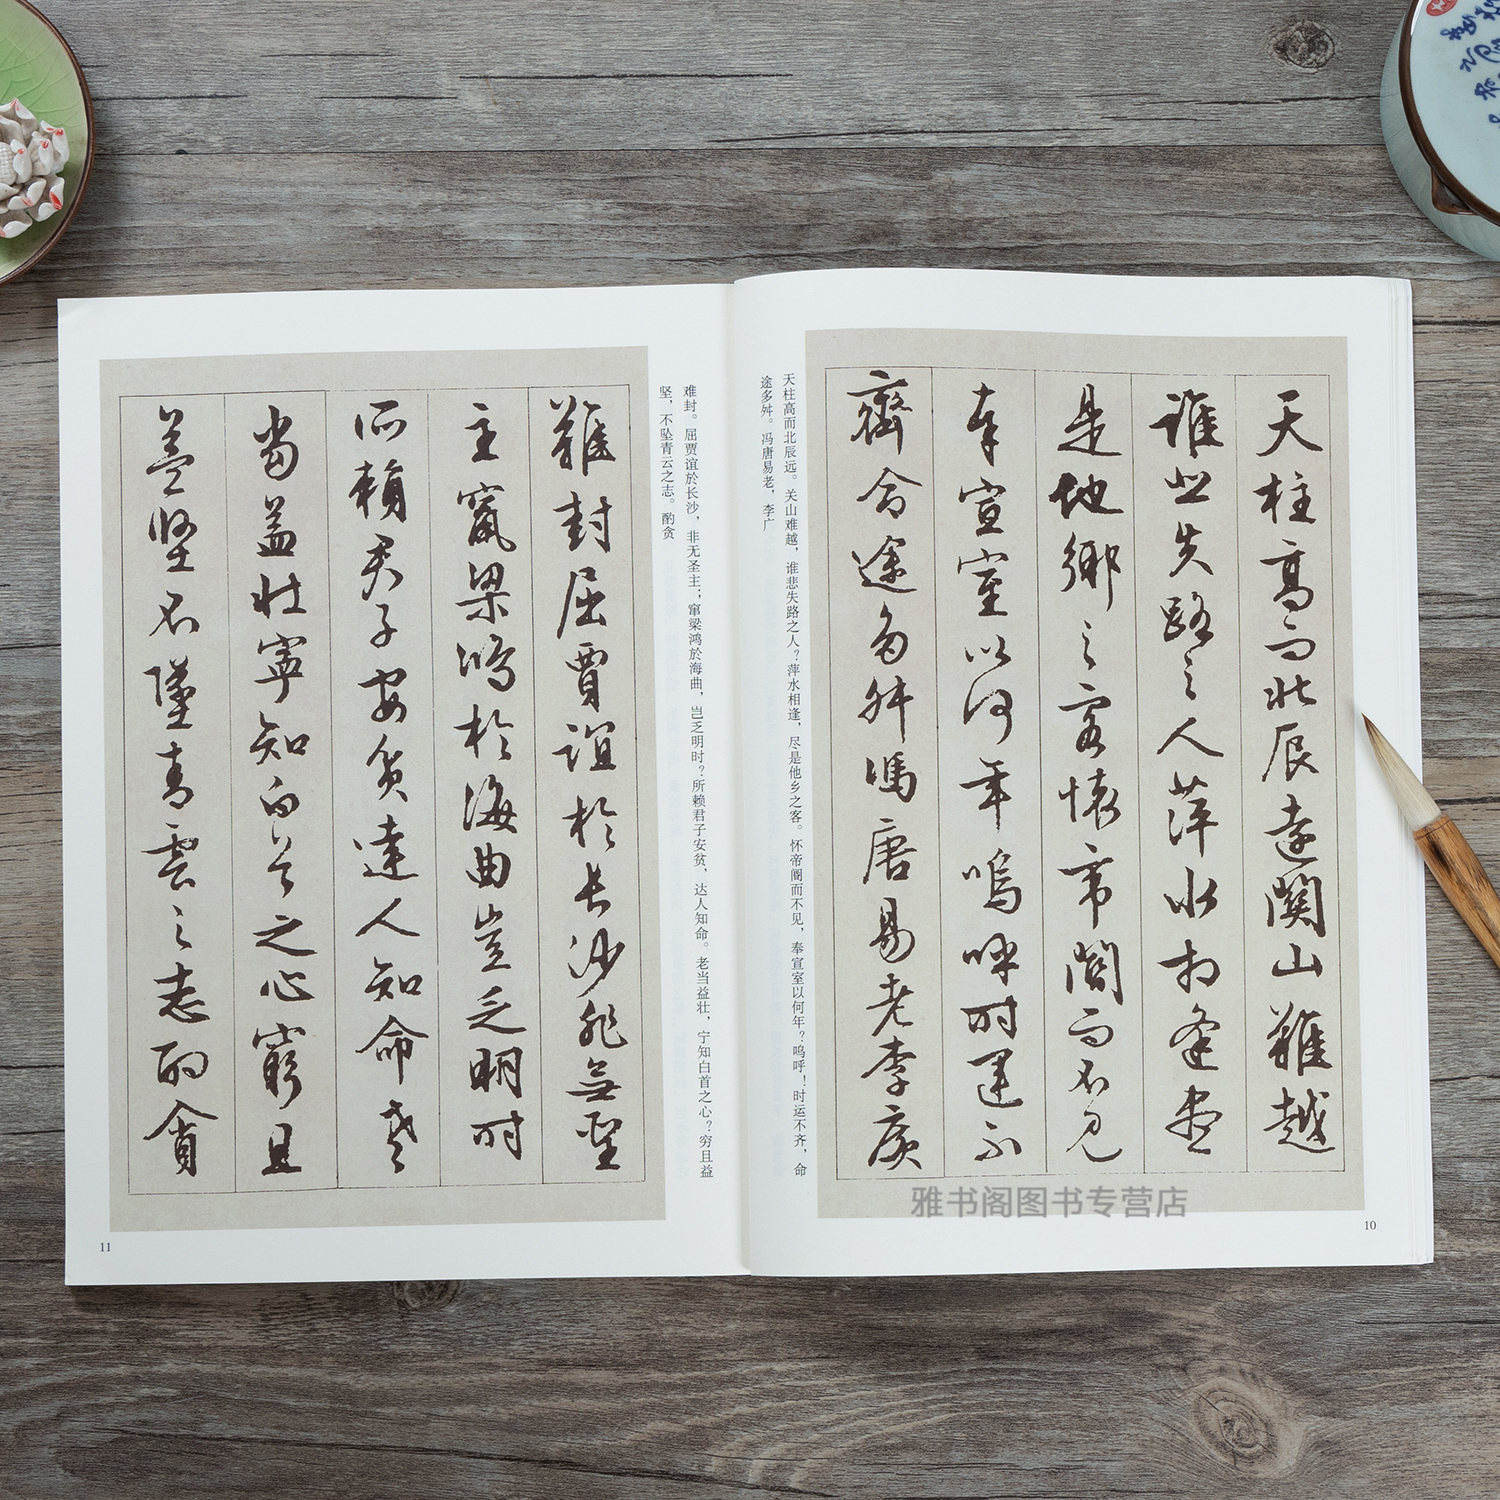 天柱高而北辰遠關山難越
誰悲失路之人萍水相逢盡
是他鄉之客懷帝閽而不見
奉宣室以何年嗚呼時運不
齊命途多舛馮唐易老李廣
天柱高而北辰远。关山难越，谁悲失路之人？萍水相逢，尽是他乡之客。怀帝阍而不见，奉宣室以何年？呜呼！时运不齐，命
途多舛。冯唐易老，李广
10
难封。屈贾谊於长沙，非无圣主；窜梁鸿於海曲，岂乏明时？所赖君子安贫，达人知命。老当益壮，宁知白首之心？穷且益
坚，不坠青云之志。酌贪
難封屈賈誼於長沙非無聖
主竄梁鴻於海曲豈乏明時
所賴君子安貧達人知命老
當益壯寧知白首之心窮且
益堅不墜青雲之志酌貪
11
雅书阁图书专营店